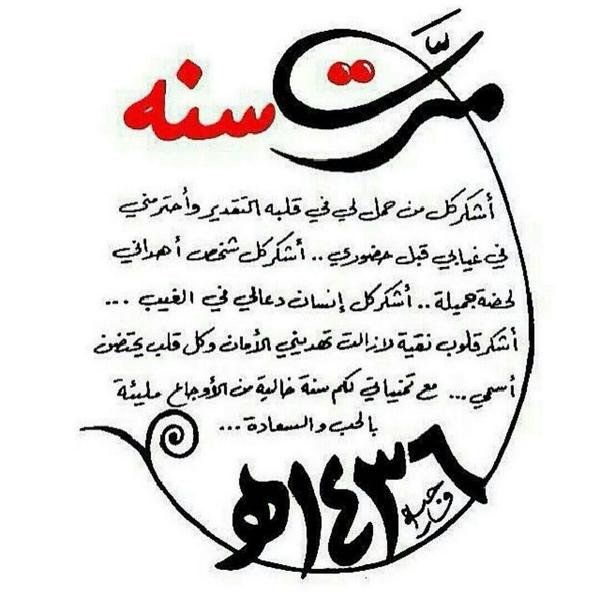 مرّت سنه
أشكر كل من حمل لي في قلبه التقدير وأحترمني
في غيابي قبل حضوري .. أشكر كل شخص أهداني
لحضة جميلة .. أشكر كل إنسان دعالي في الغيب ...
أشكر قلوب نقية لازالت تهديني الأمان وكل قلب يحتضن
أسمي ... مع تمنياتي لكم سنة خالية من الأوجاع مليئة
بالحب والسعادة ...
١٤٣٦هـ